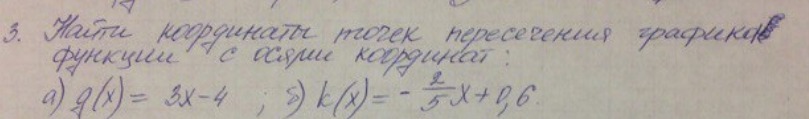 3. Найти координаты точек пересечения графика
функции с осями координат:
а) g(x) = 3x-4 ; б) k(x) = - 2/5 x + 0,6.